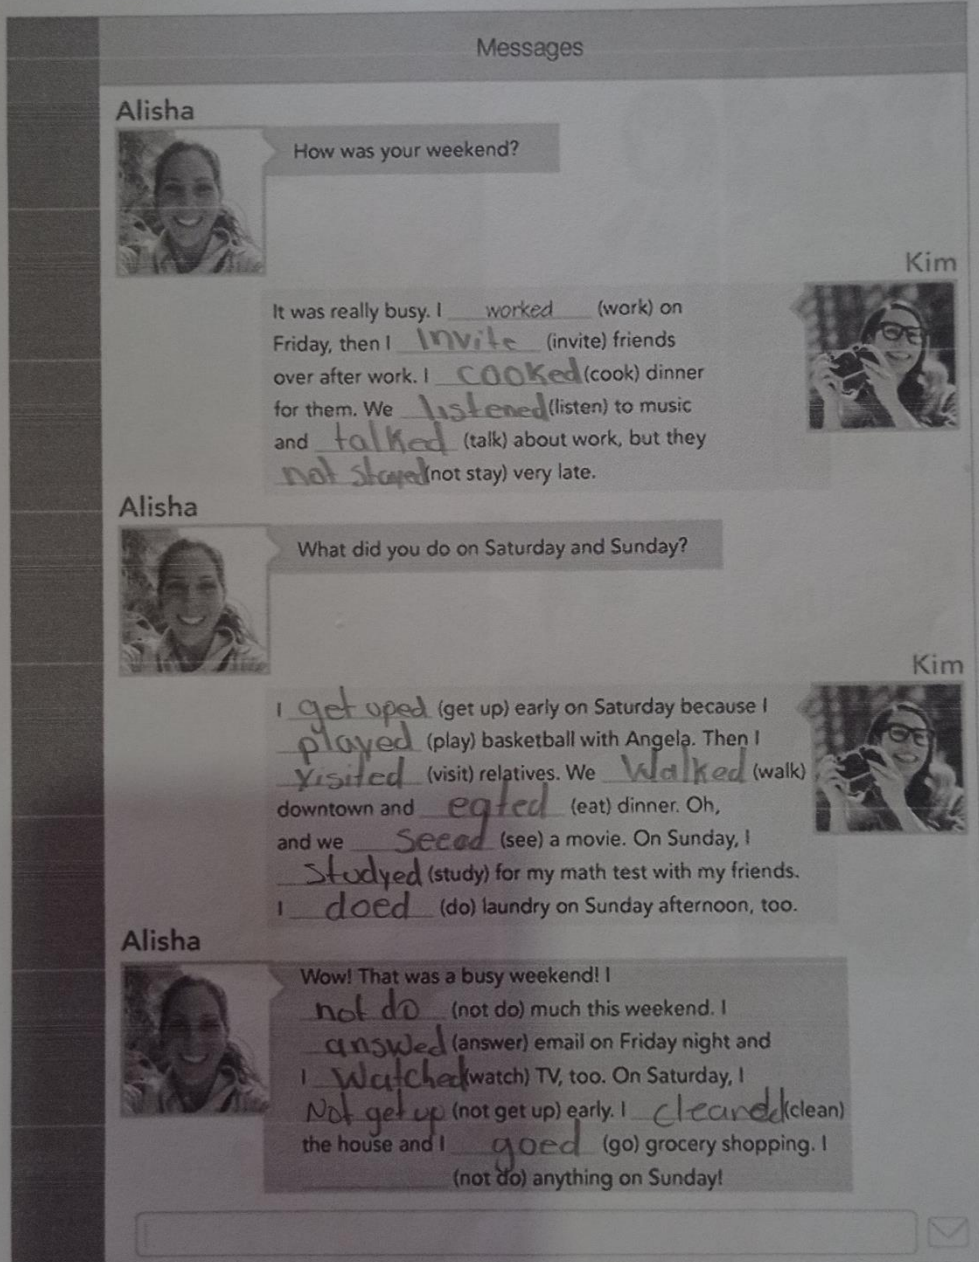 Messages
Alisha
How was your weekend?
Kim
It was really busy. I worked (work) on
Friday, then I Invite (invite) friends
over after work. I cooked (cook) dinner
for them. We listened (listen) to music
and talked (talk) about work, but they
not stayed (not stay) very late.
Alisha
What did you do on Saturday and Sunday?
Kim
I get uped (get up) early on Saturday because I
played (play) basketball with Angela. Then I
visited (visit) relatives. We Walked (walk)
downtown and eated (eat) dinner. Oh,
and we seeed (see) a movie. On Sunday, I
Studyed (study) for my math test with my friends.
I doed (do) laundry on Sunday afternoon, too.
Alisha
Wow! That was a busy weekend! I
not do (not do) much this weekend. I
answed (answer) email on Friday night and
I Watched (watch) TV, too. On Saturday, I
Not get up (not get up) early. I (clean)
the house and I goed (go) grocery shopping. I
(not do) anything on Sunday!